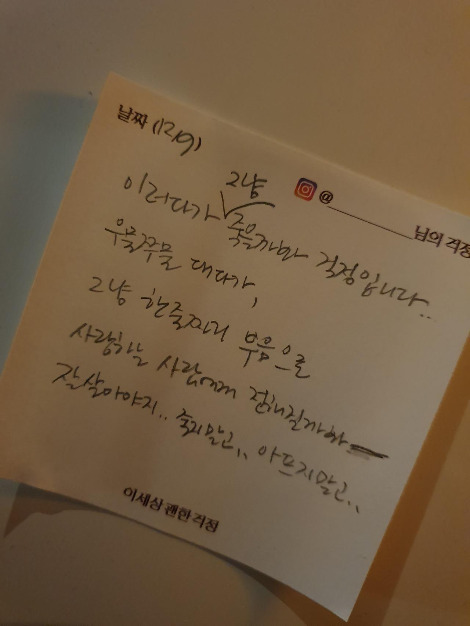 날짜 (12/19)
@ 님의 걱정
이러다가 그냥 죽을까봐 걱정입니다..
우물쭈물 대다가,
그냥 한줄짜리 부음으로
사랑하는 사람에게 전해질까봐
잘살아야지.. 죽지말고.. 아프지말고..
이세상 괜한 걱정